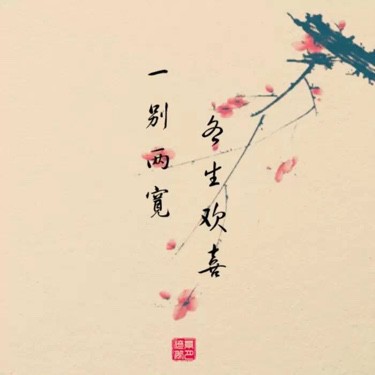 一别两寬
各生欢喜